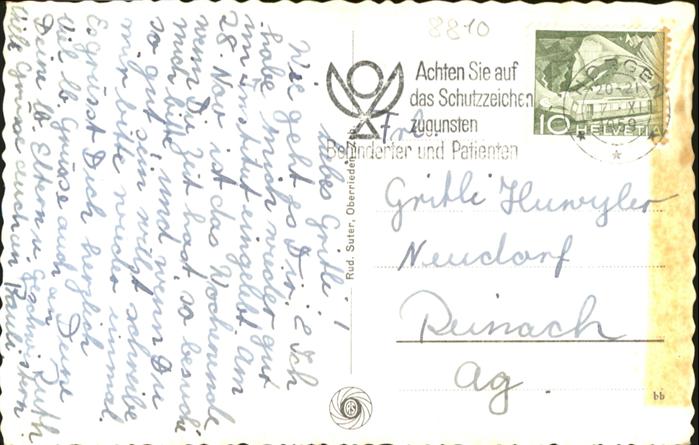 Liebes Gritli!
Wie geht es Dir? Ich
habe mich wieder gut
im Institut eingelebt am
28. Nov ist das Wochenende
wenn Du Zeit hast, so besuch
mich bitte, und wenn Du
so gut sein willst schreibe
mir bitte wieder einmal
Es grüsst Dich herzlich
Ruth
viel lb Grüsse auch an Deine
Dein lb. Eltern u. Geschwistern.
viele Grüsse auch an Pauli
8810
Achten Sie auf
das Schutzzeichen
zugunsten
Behinderter und Patienten
HORGEN
20-21
10 HELVETIA
Frl.
Gritli Huwyler
Neudorf
Reinach
Ag
Rud. Suter, Oberrieden
bb